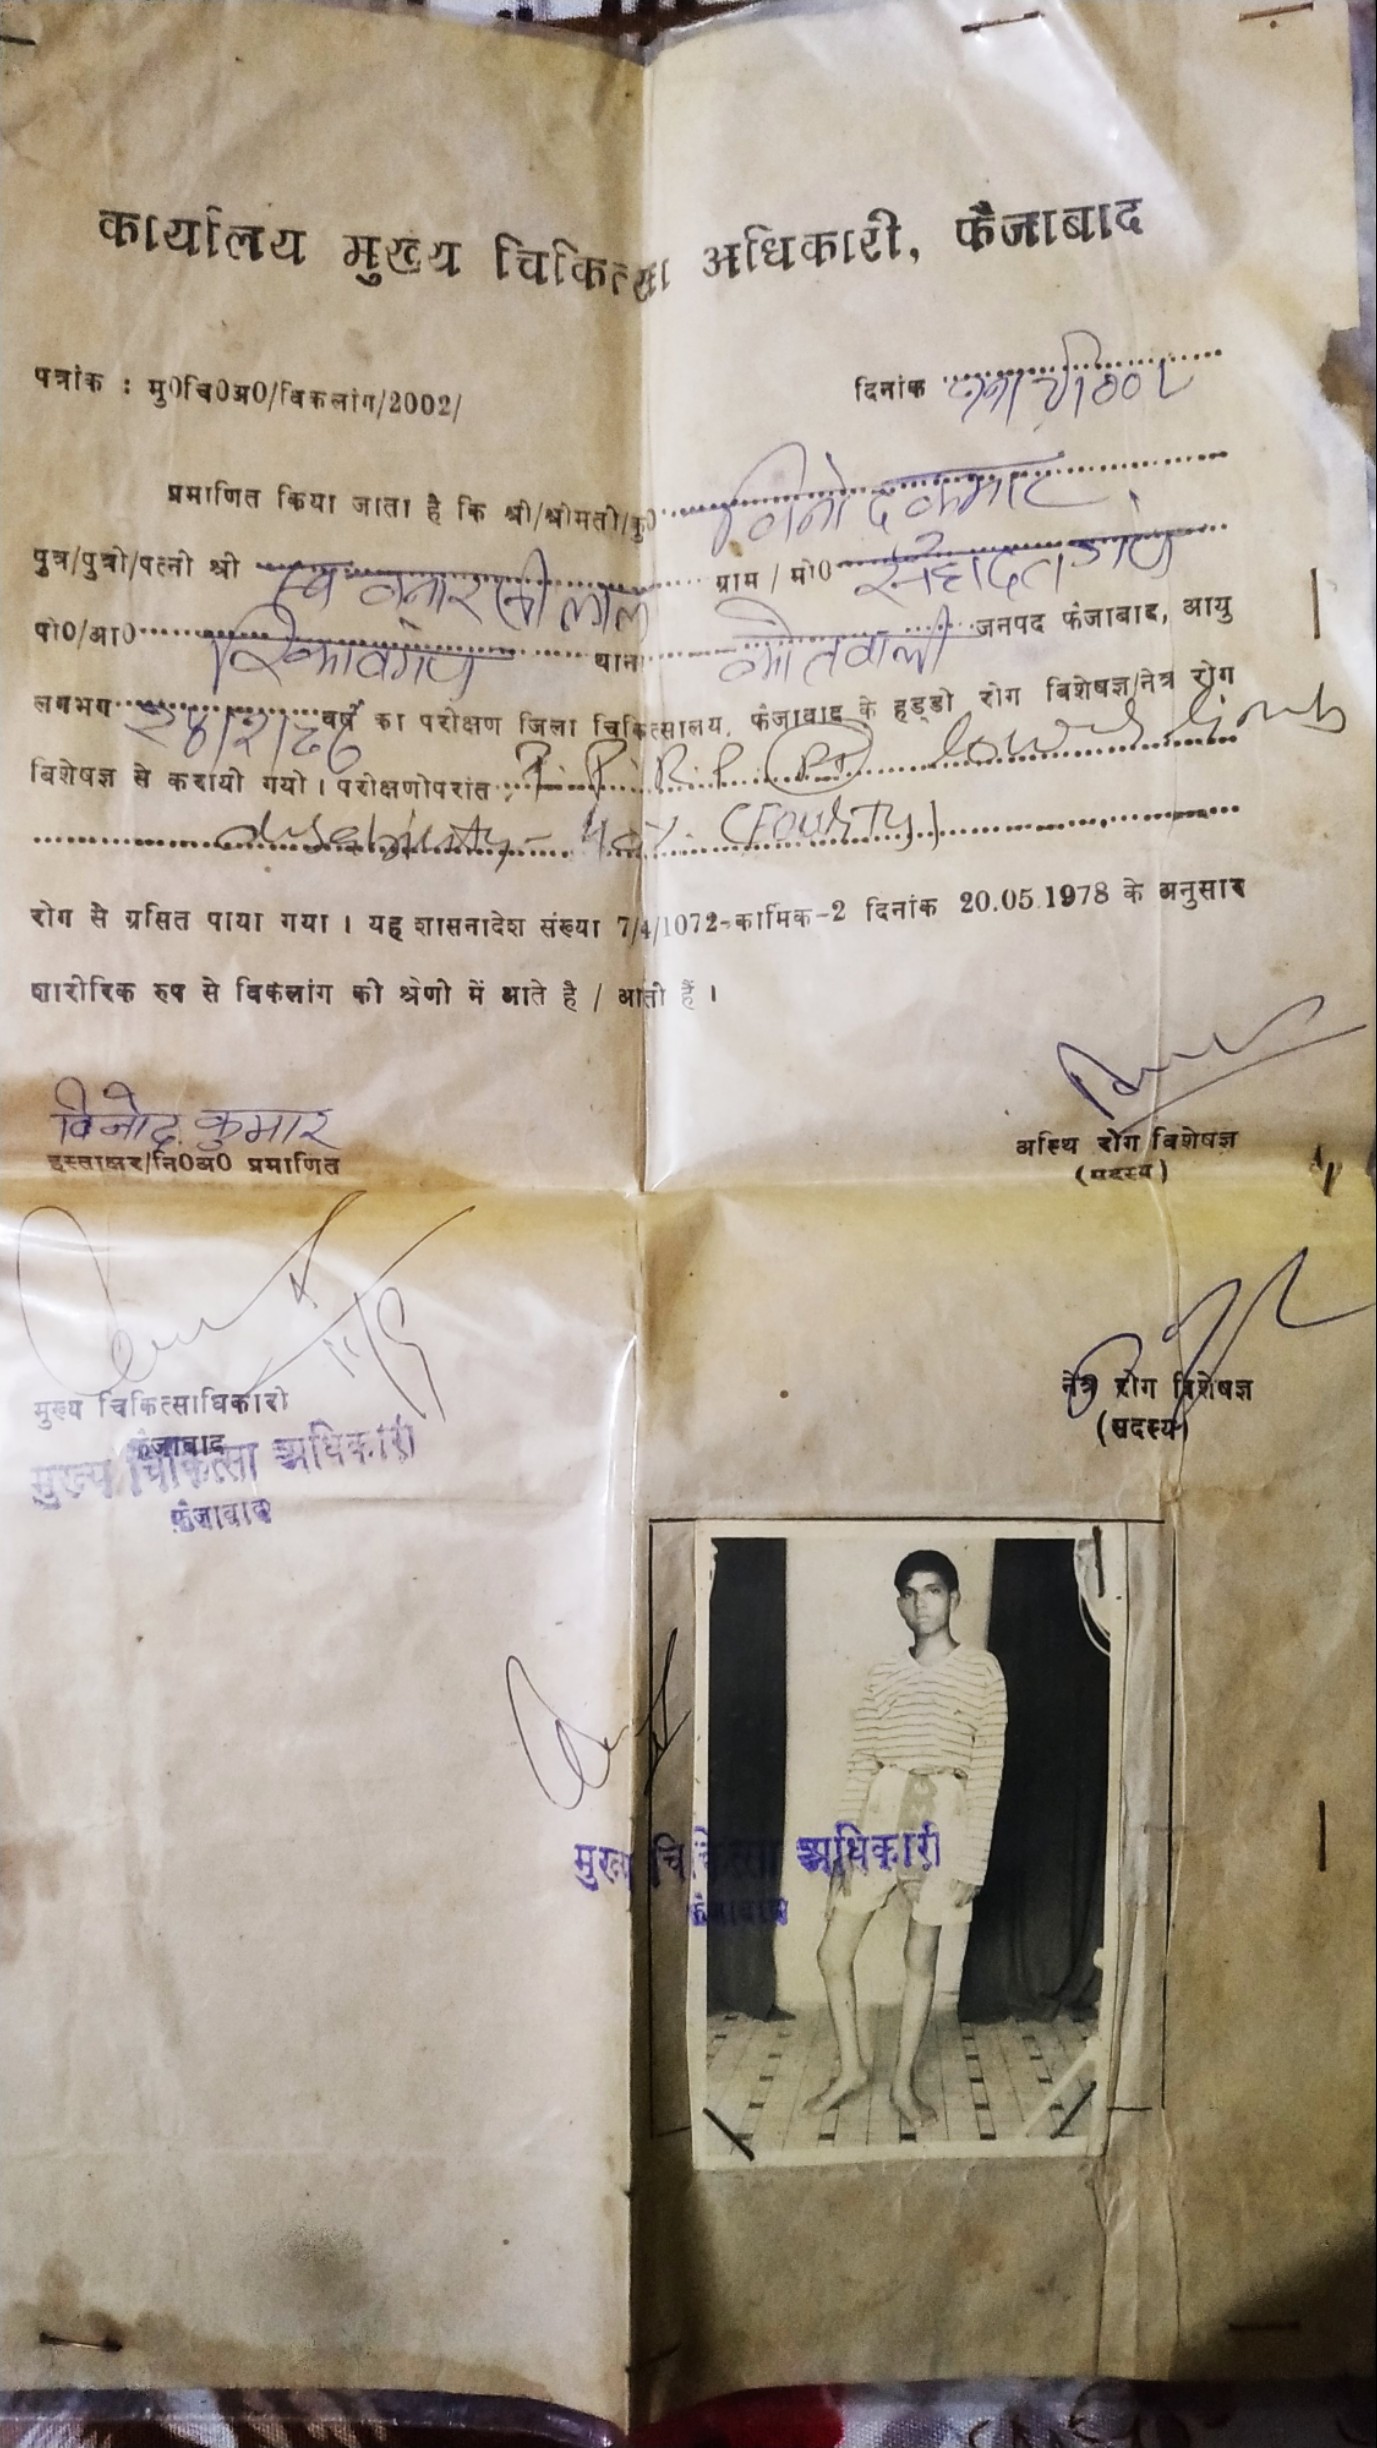 कार्यालय मुख्य चिकित्सा अधिकारी, फैजाबाद
पत्रांक : मु0चि0अ0/विकलांग/2002/
दिनांक
प्रमाणित किया जाता है कि श्री/श्रीमती/कु0 विनोद कुमार
पुत्र/पुत्री/पत्नी श्री स्व बनारसी लाल ग्राम / मो0 सहादतगंज
पो0/आ0 रिकाबगंज थाना कोतवाली जनपद फैजाबाद, आयु
लगभग वर्ष का परीक्षण जिला चिकित्सालय, फैजाबाद के हड्डी रोग विशेषज्ञ/नेत्र रोग
विशेषज्ञ से करायी गयी । परीक्षणोपरांत P.P.R.P. (Rt) lower limb
disability - 40%. (FOURTY)
रोग से ग्रसित पाया गया । यह शासनादेश संख्या 7/4/1072-कार्मिक-2 दिनांक 20.05.1978 के अनुसार
शारीरिक रुप से विकलांग की श्रेणी में आते है / आती हैं ।
विनोद कुमार
हस्ताक्षर/नि0अ0 प्रमाणित
अस्थि रोग विशेषज्ञ
(सदस्य)
मुख्य चिकित्साधिकारी
फैजाबाद
मुख्य चिकित्सा अधिकारी
फैजाबाद
नेत्र रोग विशेषज्ञ
(सदस्य)
मुख्य चिकित्सा अधिकारी
फैजाबाद